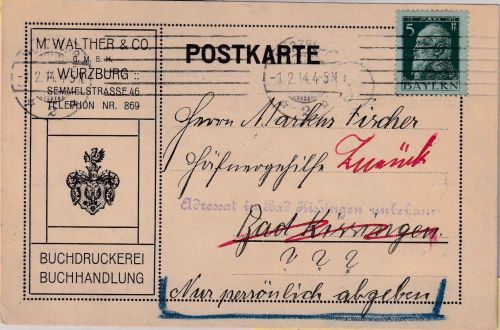 M. WALTHER & CO.
G. M. B. H.
WÜRZBURG
SEMMELSTRASSE 46
TELEPHON NR. 869
BUCHDRUCKEREI
BUCHHANDLUNG
POSTKARTE
-1. 2. 14. 4-5 N
2. 14.
2
5 Pf
BAYERN
Herrn Markus Fischer
Häfnergehilfe Zurück
Adressat in Bad Kissingen unbekannt
Bad Kissingen.
? ? ?
Nur persönlich abgeben